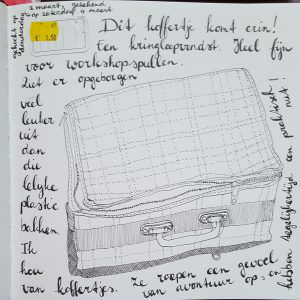 gekocht op donderdag
2 maart, getekend
op zaterdag 4 maart
€ 3,50
Dit koffertje komt erin!
Een kringloopvondst. Heel fijn
voor workshopspullen.
Ziet er opgeborgen
veel
leuker
uit
dan
die
lelijke
plastic
bakken.
Ik
hou
van koffertjes. Ze roepen een gevoel
van avontuur op - en
hebben tegelijkertijd een praktisch nut!